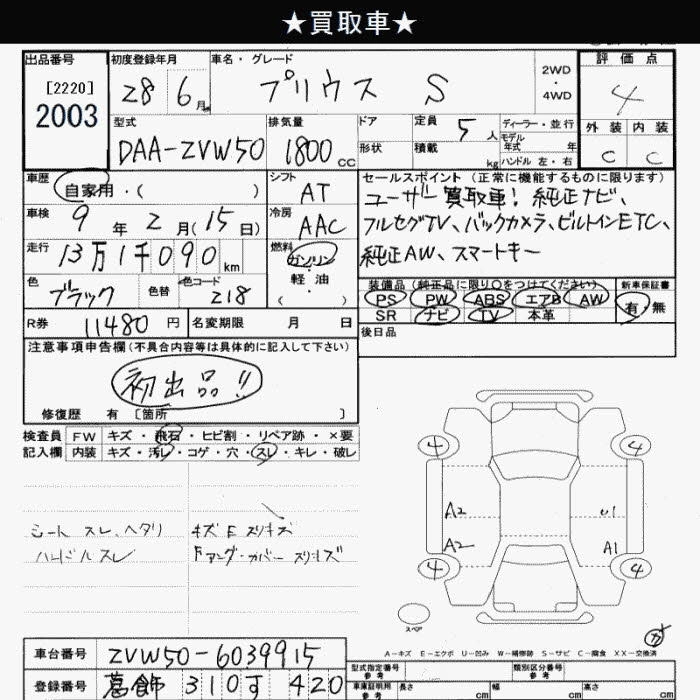 ★買取車★
出品番号
[2220]
2003
初度登録年月
28 6月
車名・グレード
プリウス S
2WD
・
4WD
評価点
4
外装 内装
C C
型式
DAA-ZVW50
排気量
1800 cc
ドア
形状
定員 5人
積載 kg
ディーラー・並行
モデル年式 年
ハンドル 左・右
車歴
自家用・( )
シフト
AT
セールスポイント (正常に機能するものに限ります)
ユーザー買取車! 純正ナビ、
フルセグTV、バックカメラ、ビルトインETC、
純正AW、スマートキー
車検
9年 2月(15日)
冷房
AAC
走行
13万1千090km
燃料
ガソリン
・
軽油
( )
色
ブラック
色替
色コード
218
装備品 (純正品に限り○をつけてください)
PS PW ABS エアB AW
SR ナビ TV 本革
新車保証書
有・無
R券 11480円
名変期限 月 日
後日品
注意事項申告欄(不具合内容等は具体的に記入して下さい)
初出品!!
修復歴 有 [箇所 ]
検査員 FW キズ・飛石・ヒビ割・リペア跡・×要
記入欄 内装 キズ・汚レ・コゲ・穴・スレ・キレ・破レ
シート スレ、ヘタリ
ハンドルスレ
キズE スリキズ
Fアンダーカバー スリキズ
4 4
A2 U1
A2 A1
4 4
スペア
A−キズ E−エクボ U−凹み W−補修跡 S−サビ C−腐食 XX−交換済
車台番号 ZVW50-6039915
登録番号 葛飾 310す 420
型式指定番号
参考
類別区分番号
参考
車庫証明用
参考
長さ cm 幅 cm 高さ cm